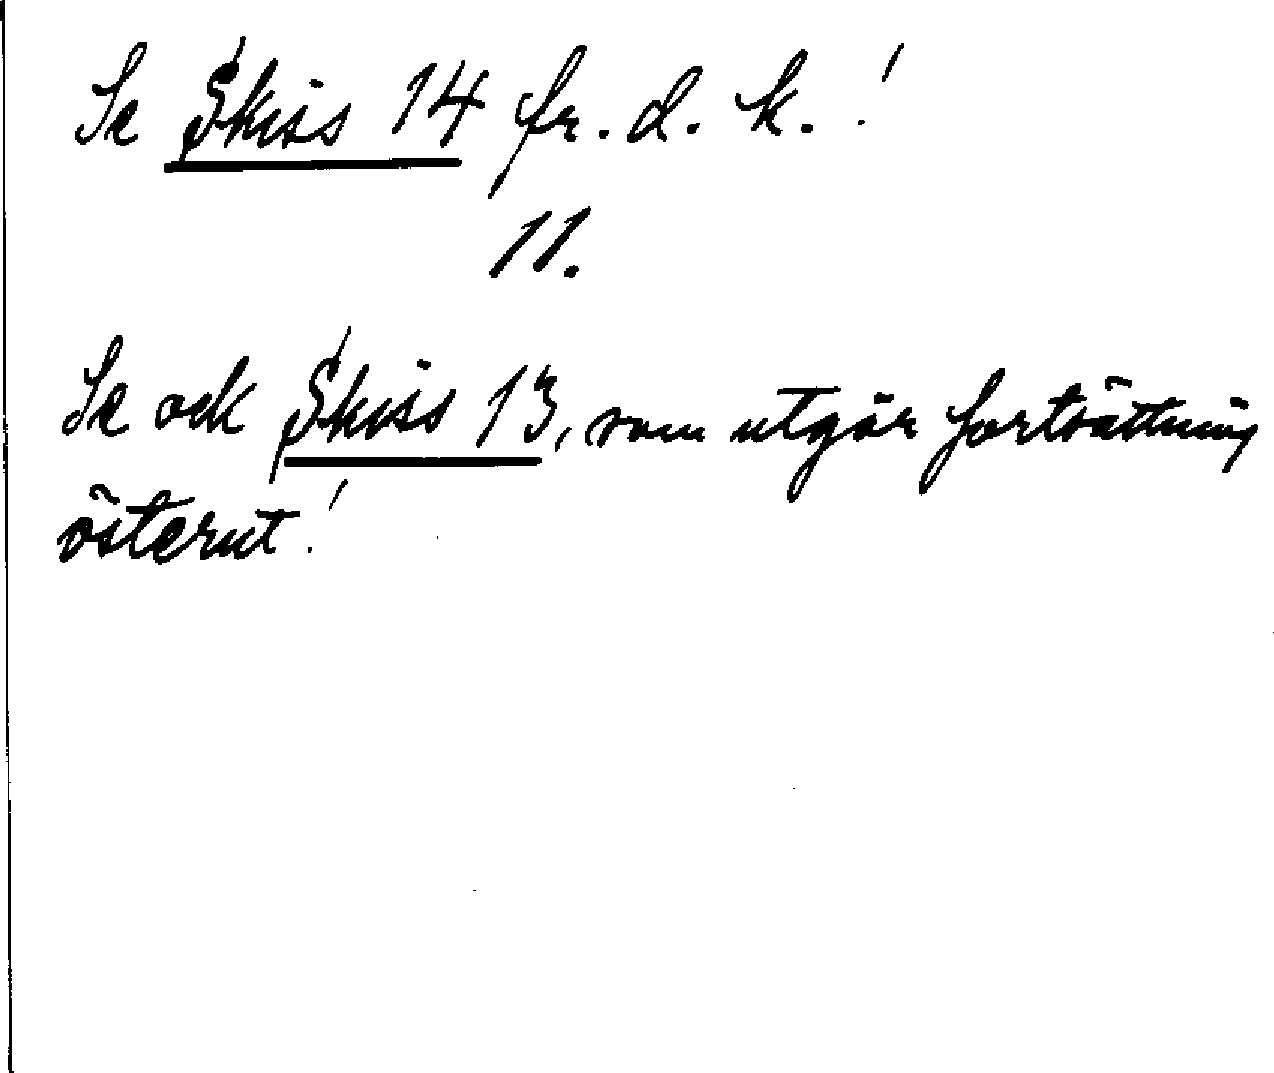 Se Skiss 14 fr. d. k.!
11.
Se ock Skiss 13, som utgör fortsättning
österut!